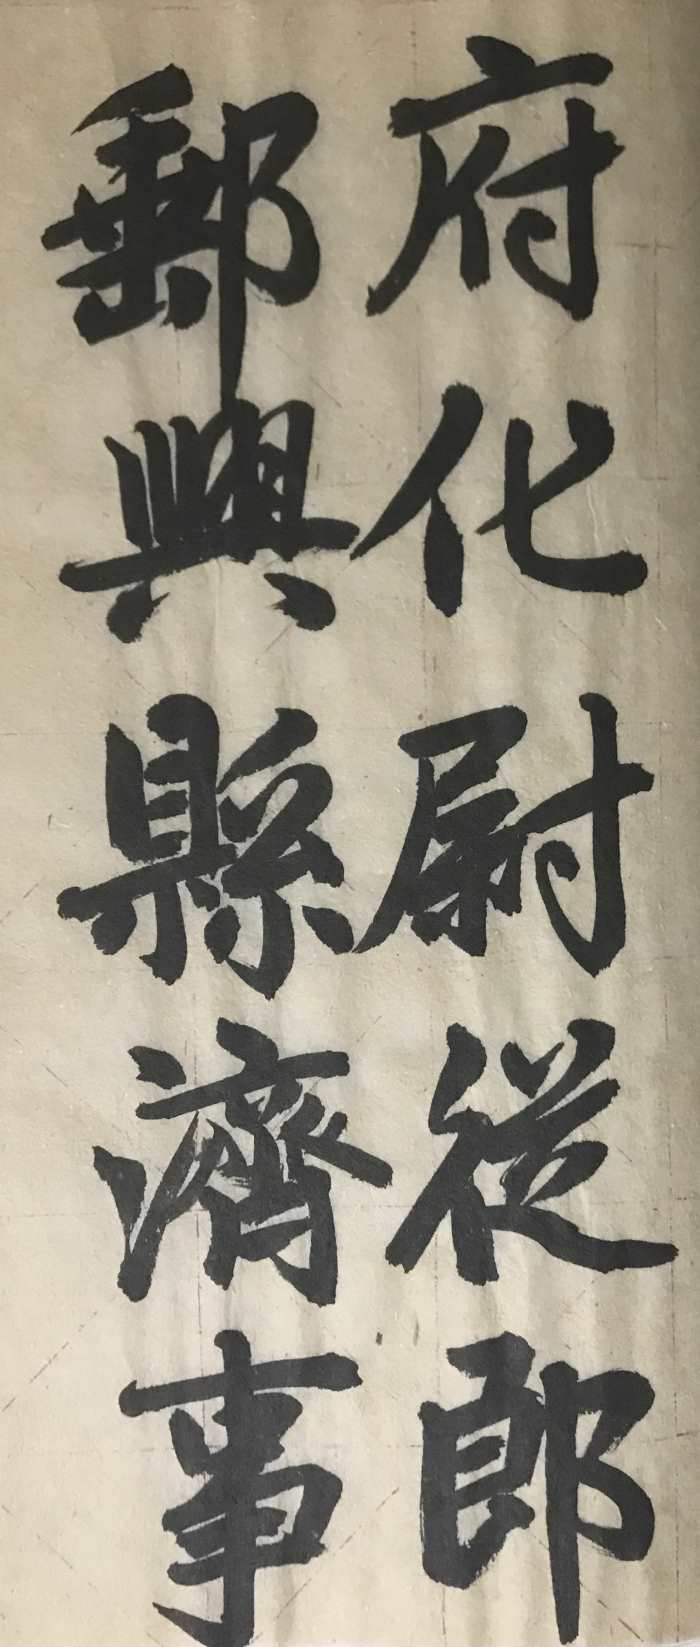 府化尉從郎
郵興縣濟事